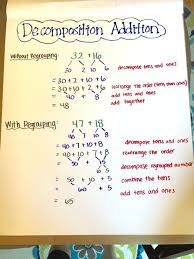 Decomposition Addition
Without Regrouping: 32 + 16
30 2 10 6 decompose tens and ones
= 30 + 2 + 10 + 6
= 30 + 10 + 2 + 6 rearrange the order (tens then ones)
= 40 + 8 add tens and ones
= 48 add together
With Regrouping: 47 + 18
40 7 10 8 decompose tens and ones
= 40 + 7 + 10 + 8 rearrange the order
= 40 + 10 + 7 + 8 add tens and ones
= 50 + 15 decompose regrouped number
50 10 5
= 50 + 10 + 5 combine the tens
= 60 + 5 add tens and ones
= 65